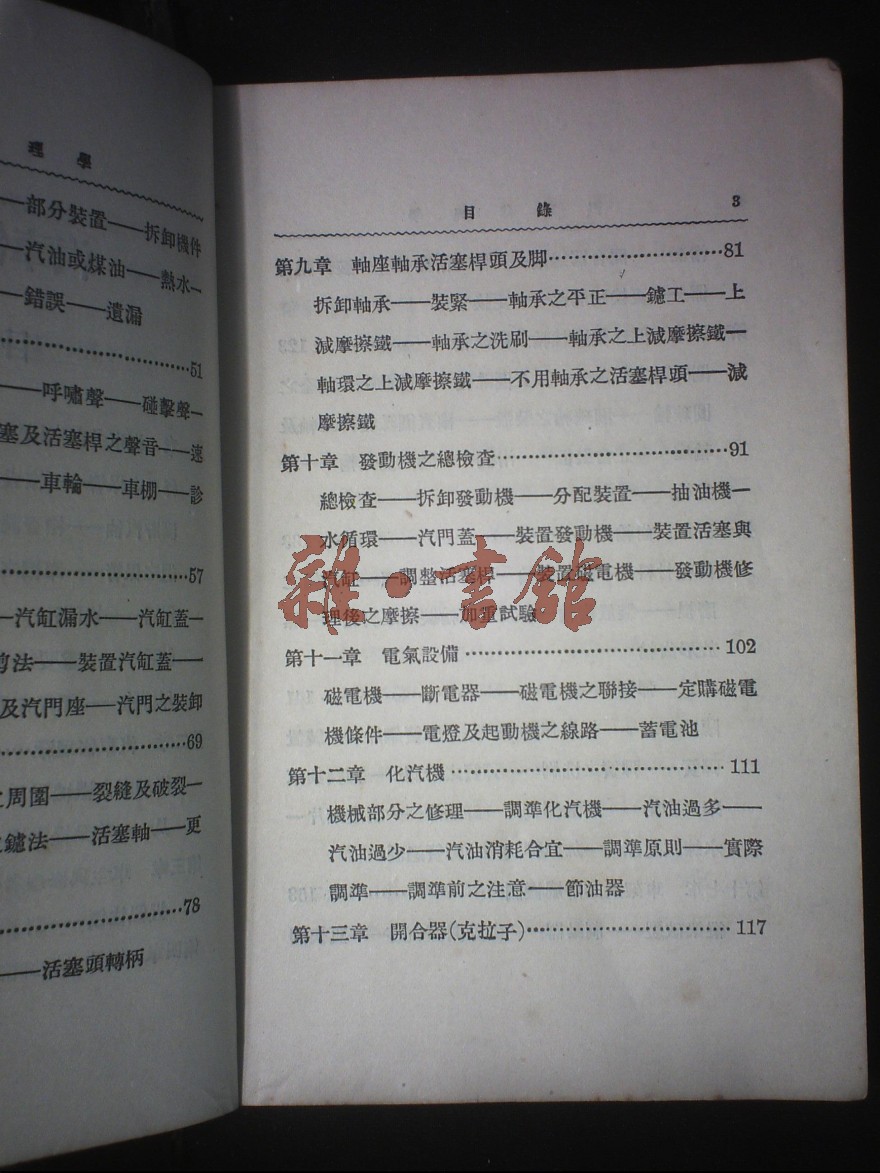 理學
——部分裝置——拆卸機件
——汽油或煤油——熱水—
——錯誤——遺漏
51
——呼嘯聲——碰擊聲—
塞及活塞桿之聲音——速
——車輪——車棚——診
57
——汽缸漏水——汽缸蓋—
剪法——裝置汽缸蓋——
及汽門座——汽門之裝卸
69
之周圍——裂縫及破裂—
鑢法——活塞軸——更
78
——活塞頭轉柄
目錄 3
第九章 軸座軸承活塞桿頭及脚……81
拆卸軸承——裝緊——軸承之平正——鑢工——上
減摩擦鐵——軸承之洗刷——軸承之上減摩擦鐵—
軸環之上減摩擦鐵——不用軸承之活塞桿頭——減
摩擦鐵
第十章 發動機之總檢查……91
總檢查——拆卸發動機——分配裝置——抽油機—
水循環——汽門蓋——裝置發動機——裝置活塞與
汽缸——調整活塞桿——裝置磁電機——發動機修
理後之摩擦——加重試驗
第十一章 電氣設備……102
磁電機——斷電器——磁電機之聯接——定購磁電
機條件——電燈及起動機之線路——蓄電池
第十二章 化汽機……111
機械部分之修理——調準化汽機——汽油過多——
汽油過少——汽油消耗合宜——調準原則——實際
調準——調準前之注意——節油器
第十三章 開合器(克拉子)……117
雜·書館